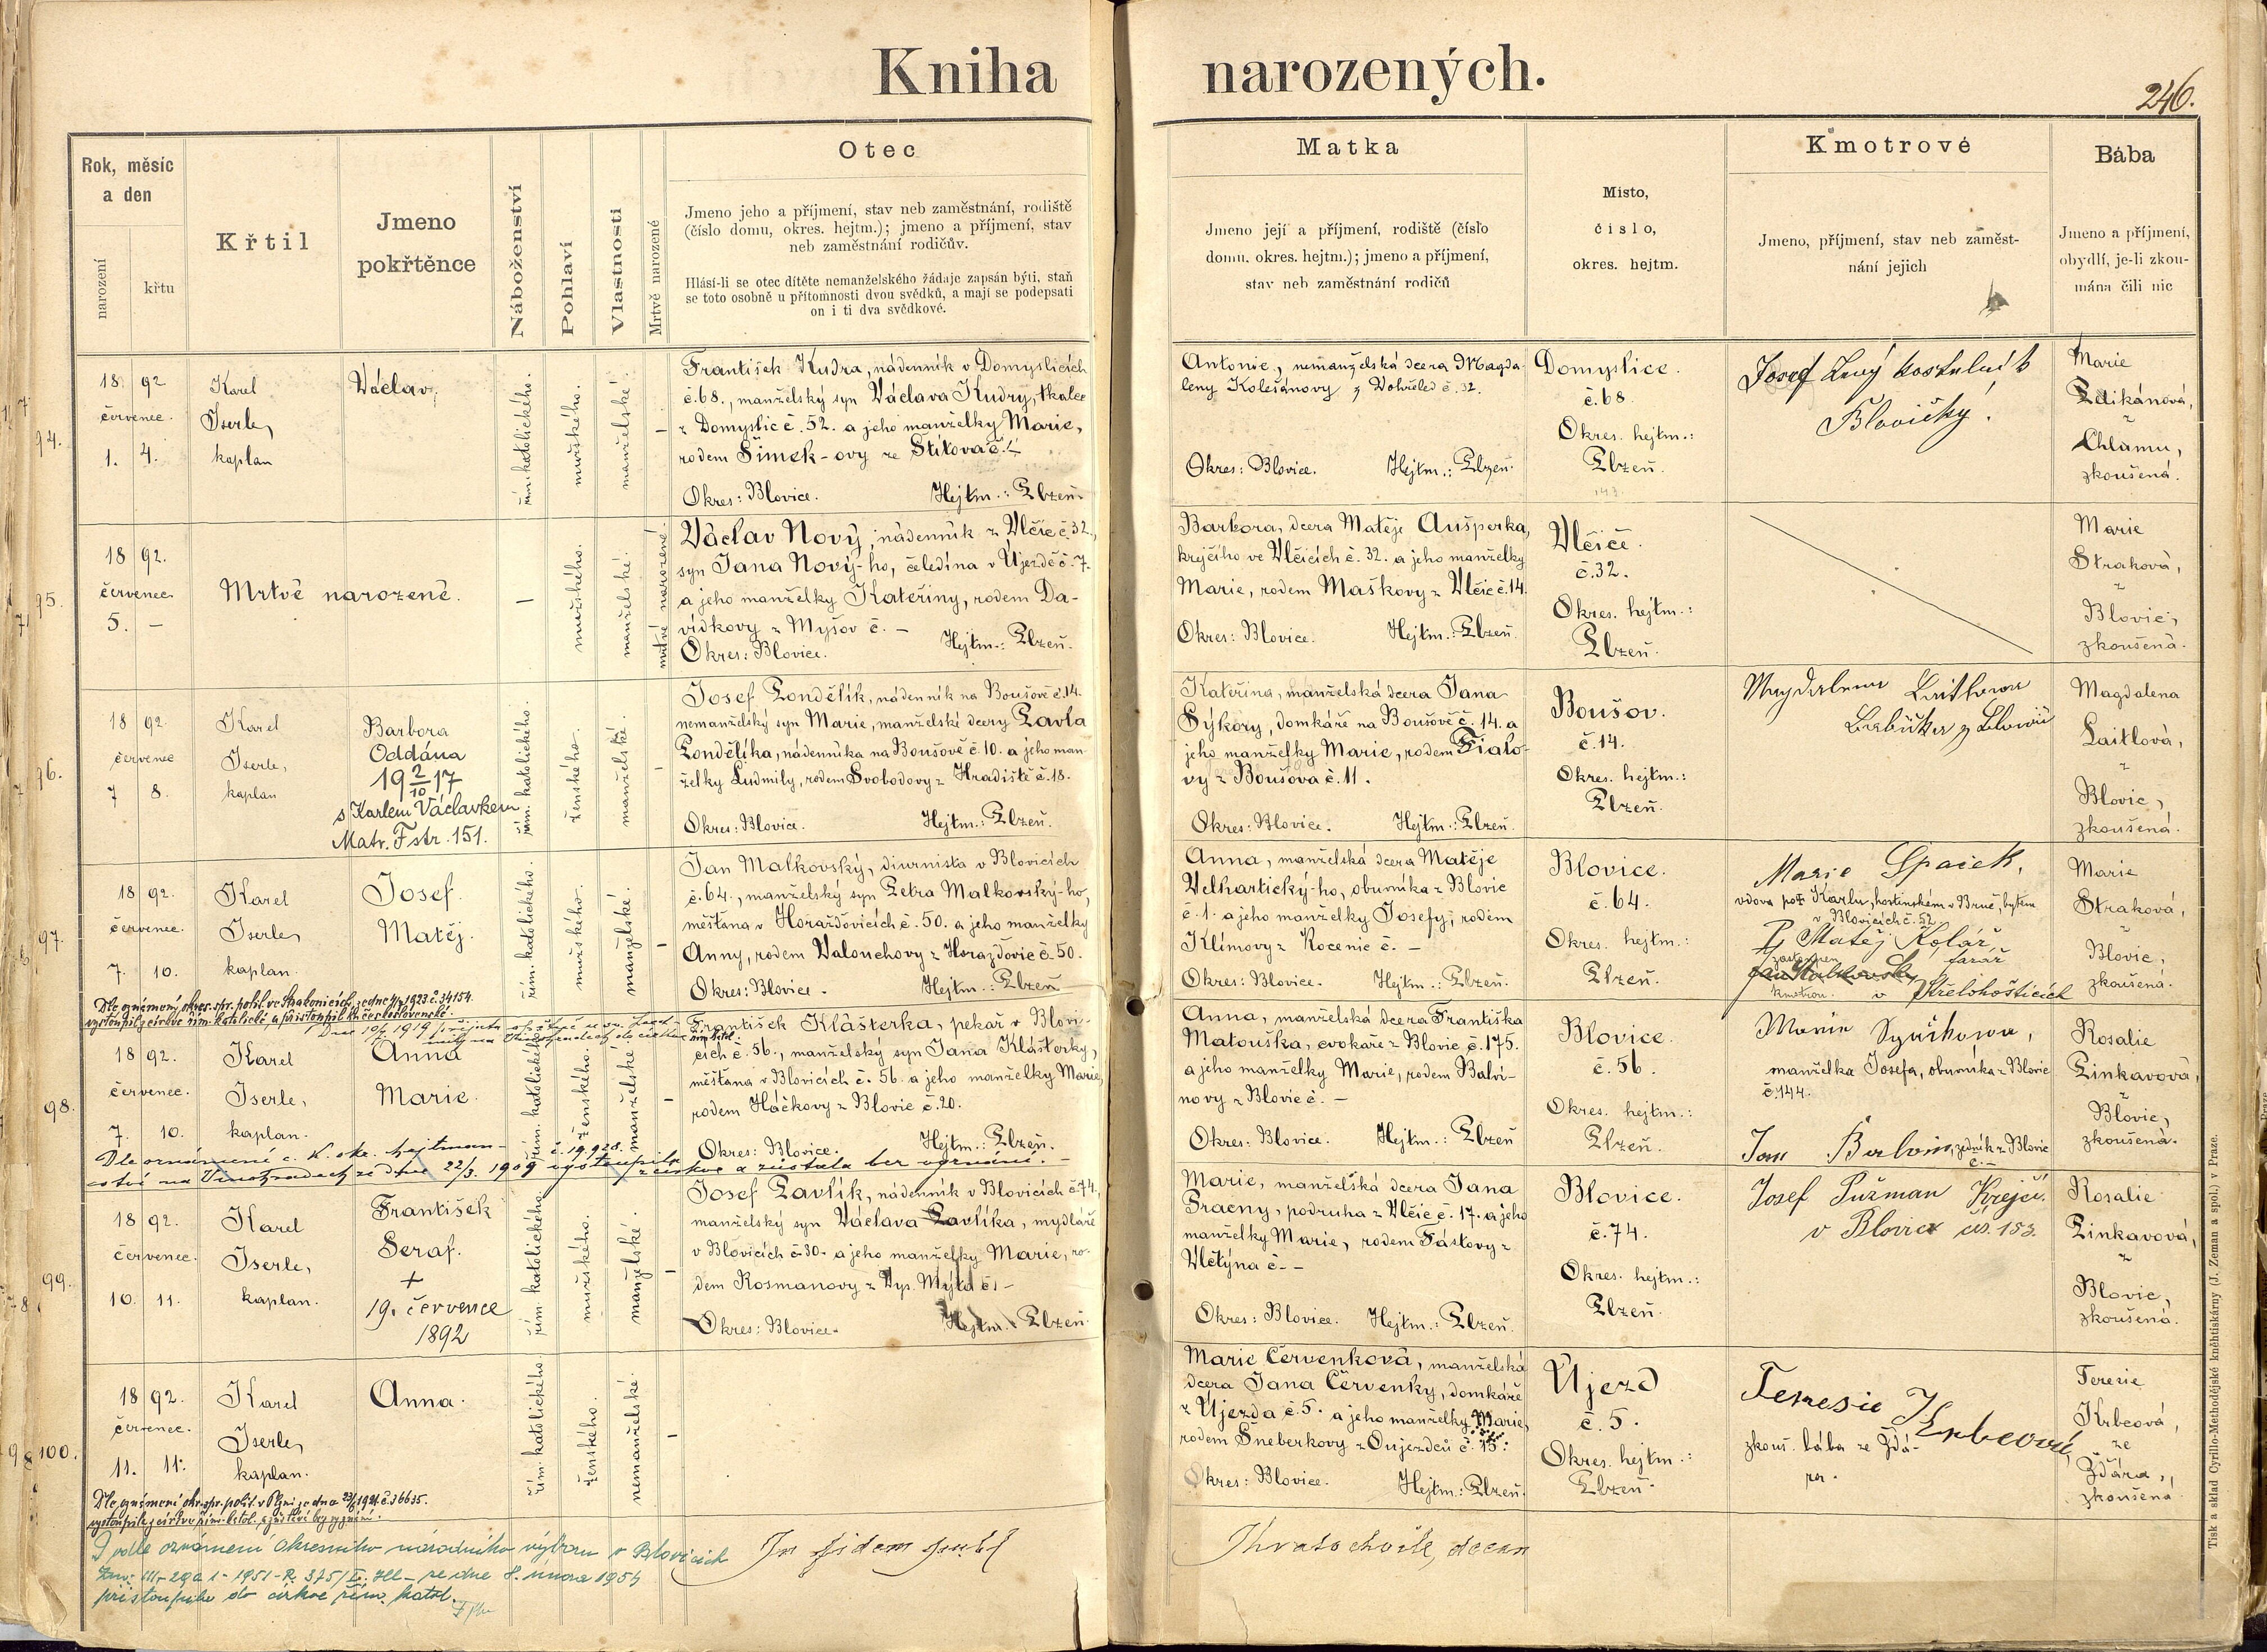 Kniha narozených.
246.
Rok, měsíc
a den
narození
křtu
Křtil
Jmeno
pokřtěnce
Náboženství
Pohlaví
Vlastnosti
Mrtvě narozené
Otec
Jmeno jeho a příjmení, stav neb zaměstnání, rodiště
(číslo domu, okres. hejtm.); jmeno a příjmení, stav
neb zaměstnání rodičův.
Hlásí-li se otec dítěte nemanželského žádaje zapsán býti, staň
se toto osobně u přítomnosti dvou svědků, a mají se podepsati
on i ti dva svědkové.
Matka
Jmeno její a příjmení, rodiště (číslo
domu, okres. hejtm.); jmeno a příjmení,
stav neb zaměstnání rodičů
Místo,
číslo,
okres. hejtm.
Kmotrové
Jmeno, příjmení, stav neb zaměst-
nání jejich
Bába
Jmeno a příjmení,
obydlí, je-li zkou-
mána čili nic
94.
18 92
červenec.
1. 4.
Karel
Iserle,
kaplan
Václav,
řím. katolického.
mužského.
manželské.
František Kudra, nádenník v Domyslicích
č. 68., manželský syn Václava Kudry, tkalce
z Domyslic č. 52. a jeho manželky Marie,
rodem Šimek-ovy ze Štítova č.
Okres: Blovice. Hejtm.: Plzeň.
Antonie, nemanželská dcera Magda-
leny Kolesánovy z Vohřeled č. 32.
Okres: Blovice. Hejtm.: Plzeň.
Domyslice.
č. 68.
Okres. hejtm.:
Plzeň.
Josef kostelník
Blovičky.
Marie
z
Chlumu,
zkoušená.
95.
18 92.
červenec.
5. –
Mrtvě narozené.
–
mužského.
manželské.
mrtvě narozené.
Václav Nový, nádenník z Vlčic č. 32.,
syn Jana Nový-ho, čeledína v Újezdě č. 7.
a jeho manželky Kateřiny, rodem Da-
vídkovy z Myšov č. –
Okres: Blovice. Hejtm.: Plzeň.
Barbora, dcera Matěje Aušperka,
krejčího ve Vlčicích č. 32. a jeho manželky
Marie, rodem Maškovy z Vlčic č. 14.
Okres: Blovice. Hejtm.: Plzeň.
Vlčice.
č. 32.
Okres. hejtm.:
Plzeň.
Marie
Straková,
z
Blovic,
zkoušená.
96.
18 92.
červenec
7 8.
Karel
Iserle,
kaplan
Barbora
Oddána
19 2/10 17
s Karlem Václavkem
Matr. F str. 151.
řím. katolického.
ženského.
manželské.
Josef Pondělík, nádenník na Boušově č. 14.
nemanželský syn Marie, manželské dcery Pavla
Pondělíka, nádenníka na Boušově č. 10. a jeho man-
želky Ludmily, rodem Svobodovy z Hradiště č. 18.
Okres: Blovice. Hejtm.: Plzeň.
Kateřina, manželská dcera Jana
Sýkory, domkáře na Boušově č. 14. a
jeho manželky Marie, rodem Fialo-
vy z Boušova č. 11.
Okres: Blovice. Hejtm.: Plzeň.
Boušov.
č. 14.
Okres. hejtm.:
Plzeň.
Magdalena
Magdalena
Laitlová,
z
Blovic,
zkoušená.
97.
18 92.
červenec.
7. 10.
Karel
Iserle,
kaplan.
Josef
Matěj.
řím. katolického.
mužského.
manželské.
Jan Malkovský, diurnista v Blovicích
č. 64., manželský syn Petra Malkovský-ho,
měšťana v Horažďovicích č. 50. a jeho manželky
Anny, rodem Valouchovy z Horažďovic č. 50.
Okres: Blovice. Hejtm.: Plzeň
Anna, manželská dcera Matěje
Velhartický-ho, obuvníka z Blovic
č. 1. a jeho manželky Josefy, rodem
Klímovy z Kocenic č. –
Okres: Blovice. Hejtm.: Plzeň.
Blovice.
č. 64.
Okres. hejtm.:
Plzeň.
Marie Spacek,
vdova po Karlu, hostinském v Brně, bytem
v Blovicích č. 52.
P. Matěj Kolář,
farář
kmotrem. v Střelohošticích
Marie
Straková,
z
Blovic,
zkoušená.
Dle oznámení okres. spr. polit. ve Strakonicích ze dne 1923 č. 34154.
vystoupil z církve řím. katolické a přistoupil k československé.
98.
18 92.
červenec.
7. 10.
Karel
Iserle,
kaplan.
Anna
Marie.
řím. katolického.
ženského.
manželské
František Klášterka, pekař v Blovi-
cích č. 56., manželský syn Jana Klášterky,
měšťana v Blovicích č. 56. a jeho manželky Marie,
rodem Háčkovy z Blovic č. 20.
Okres: Blovice. Hejtm.: Plzeň.
Anna, manželská dcera Františka
Matouška, cvokaře z Blovic č. 175.
a jeho manželky Marie, rodem Balví-
novy z Blovic č. –
Okres: Blovice. Hejtm.: Plzeň
Blovice.
č. 56.
Okres. hejtm.:
Plzeň.
Marie
manželka Josefa, obuvníka z Blovic
č. 144.
Jan zedník z Blovic
č. –
Rosalie
Pinkavová,
z
Blovic,
zkoušená.
Dle oznámení c. k. okr. hejtman- č. 19.928.
ství na Vinohradech ze dne 22/3. 1909 vystoupila
z církve a zůstala bez vyznání. –
99.
18 92.
červenec.
10. 11.
Karel
Iserle,
kaplan.
František
Seraf.
+
19. července
1892
řím. katolického.
mužského.
manželské.
Josef Pavlík, nádenník v Blovicích č. 74.,
manželský syn Václava Pavlíka, mydláře
v Blovicích č. 30. a jeho manželky Marie, ro-
dem Rosmanovy z Vys. Mýta č. –
Okres: Blovice. Hejtm. Plzeň.
Marie, manželská dcera Jana
Pracny, podruha z Vlčic č. 17. a jeho
manželky Marie, rodem Fástovy z
Vletýna č. –
Okres: Blovice. Hejtm.: Plzeň.
Blovice.
č. 74.
Okres. hejtm.:
Plzeň.
Josef Pužman Krejčí.
v Blovic čís. 183.
Rosalie
Pinkavová,
z
Blovic,
zkoušená.
100.
18 92.
červenec.
11. 11.
Karel
Iserle,
kaplan.
Anna.
řím. katolického.
ženského.
nemanželské.
Marie Červenková, manželská
dcera Jana Červenky, domkáře
z Újezda č. 5. a jeho manželky Marie,
rodem Šneberkovy z Oujezdců č. 15.
Okres: Blovice. Hejtm.: Plzeň.
Újezd
č. 5.
Okres. hejtm.:
Plzeň.
Teresie Krbcová,
zkouš. bába ze Ždá-
Teresie
Krbcová,
ze
Ždára,
zkoušená
Dle oznámení okr. spr. polit. v Plzni ze dne 1921 č. 36635.
vystoupila z církve řím. katol. a zůstává bez vyznání.
Podle oznámení Okresního národního výboru v Blovicích
ze dne 8. února 1954
přistoupila do církve řím. katol.
In fidem publ
Chvatochvile, decan
Tisk a sklad Cyrillo-Methodějské kněhtiskárny (J. Zeman a spol.) v Praze.